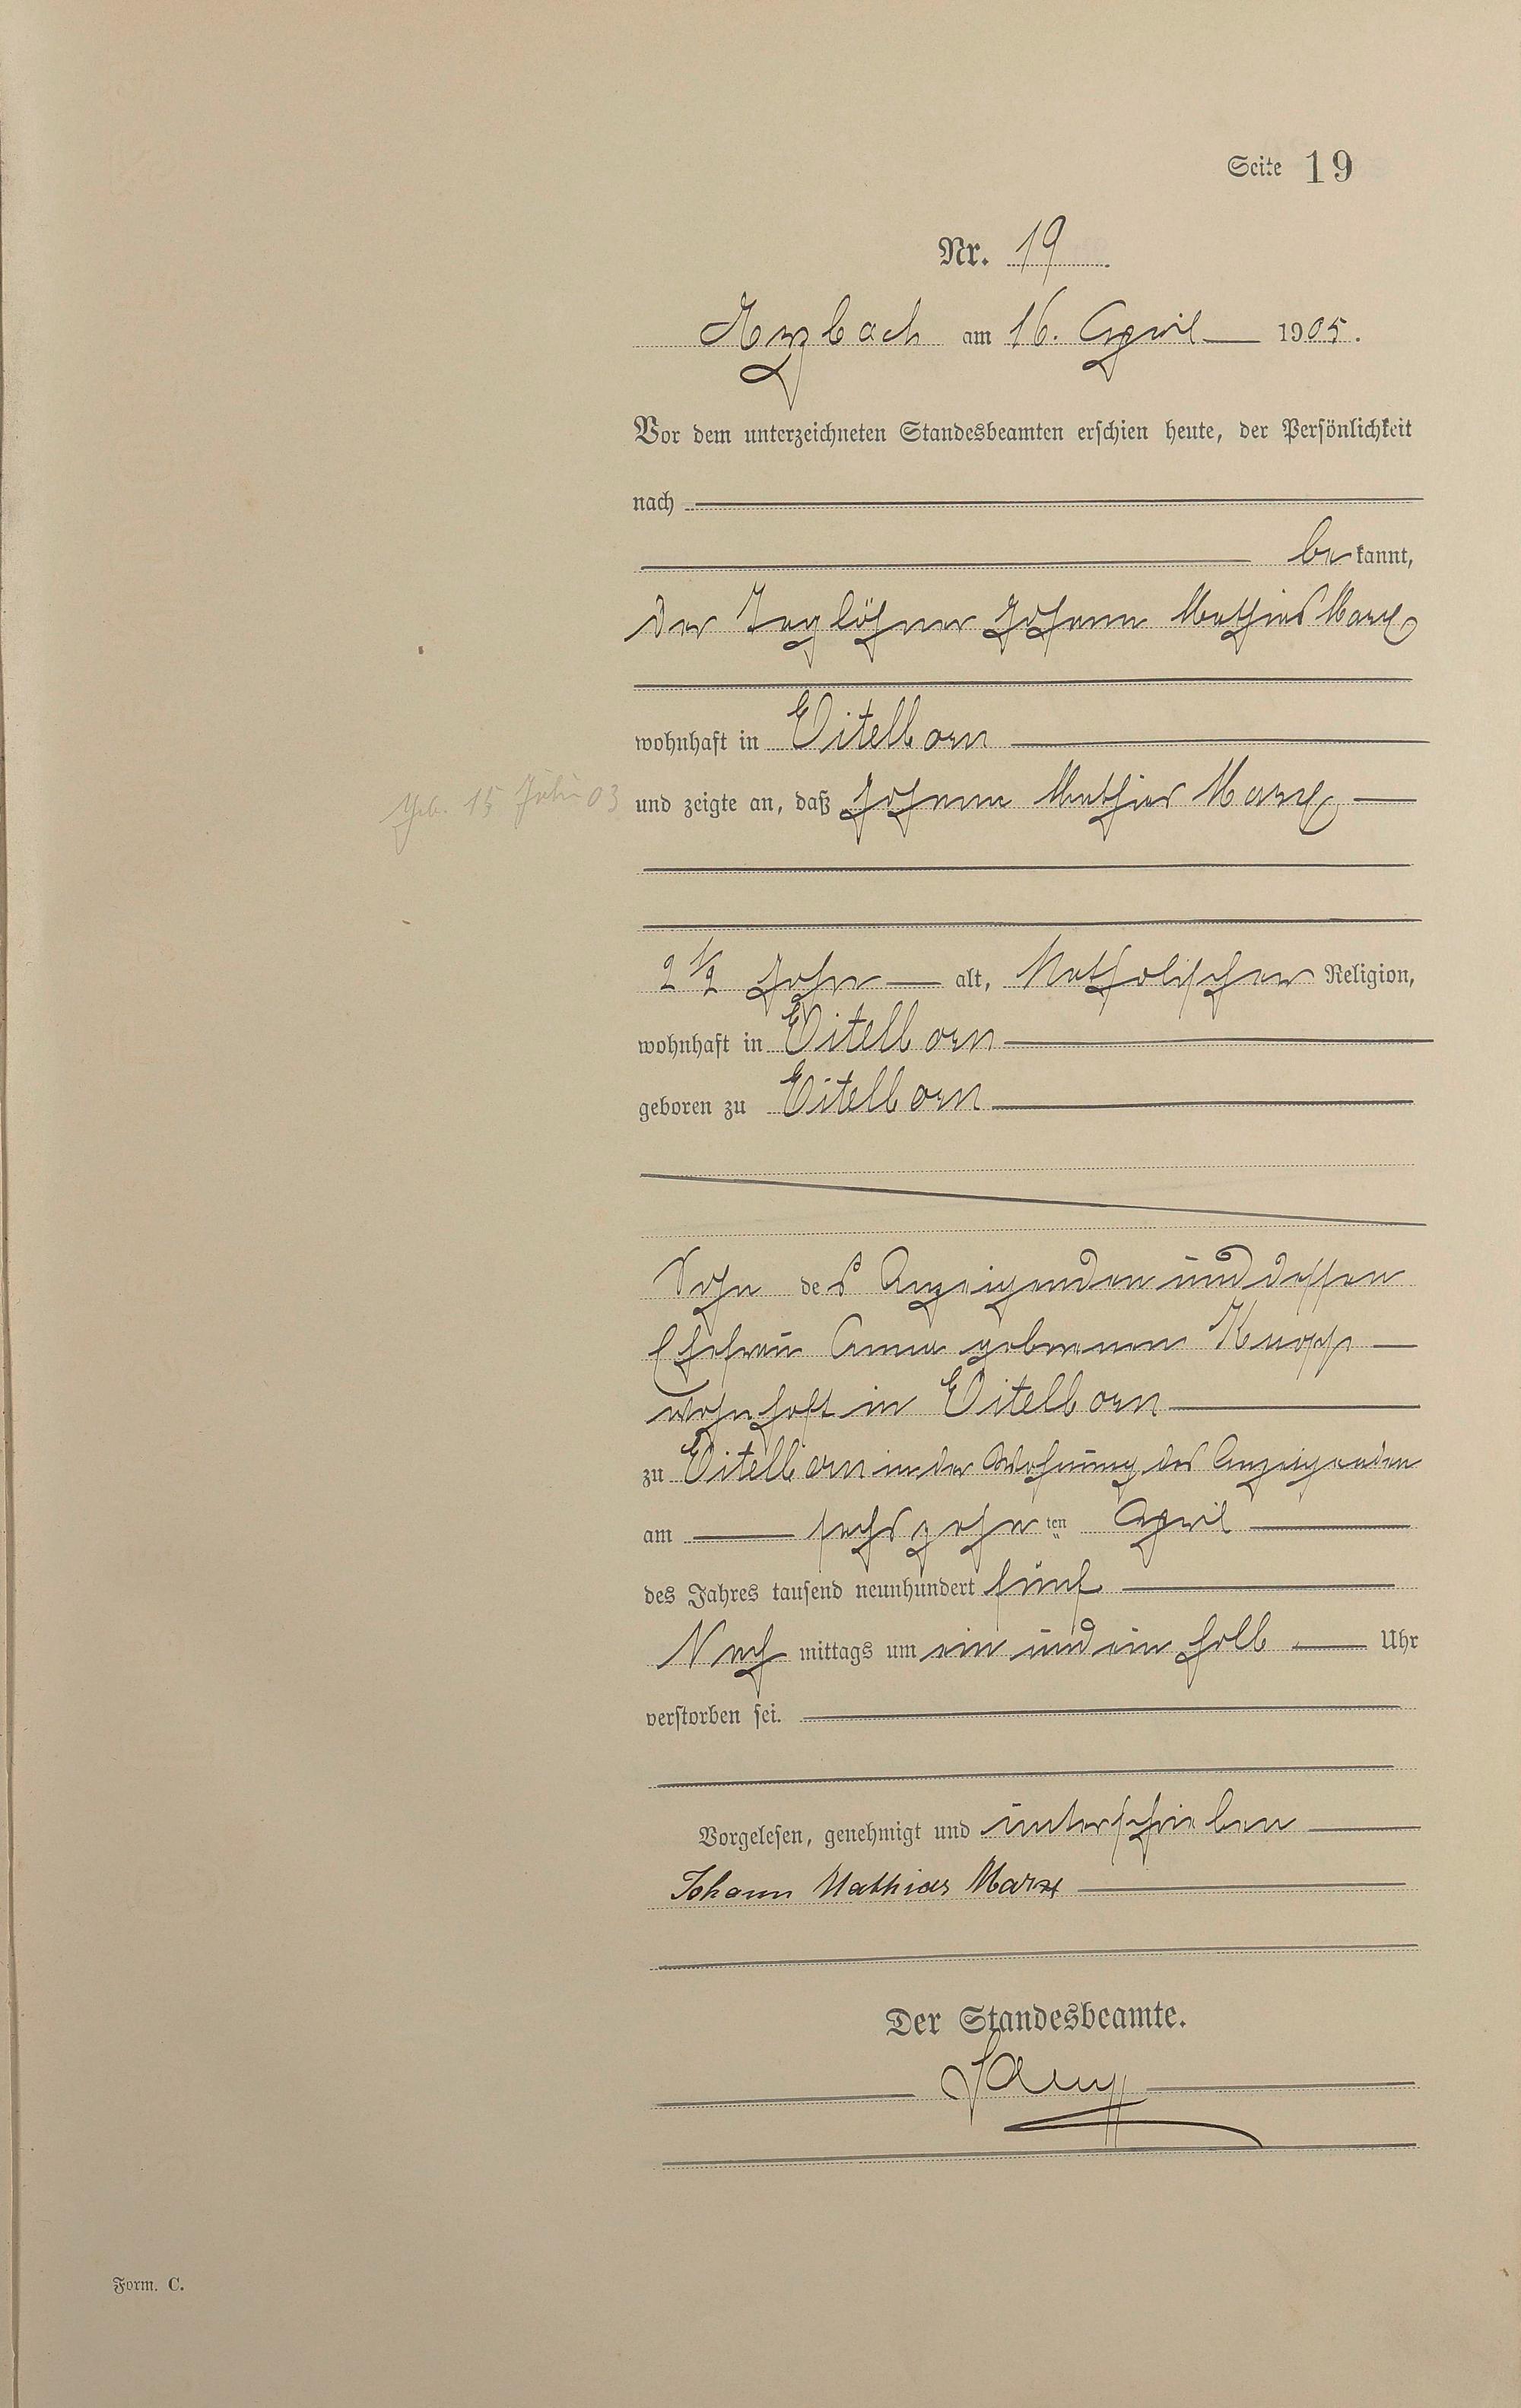 Seite 19
Nr. 19.
Arzbach am 16. April 1905.
Vor dem unterzeichneten Standesbeamten erschien heute, der Persönlichkeit
nach
bekannt,
der Taglöhner Johann Mathias Marx
wohnhaft in Eitelborn
Geb. 15 03 und zeigte an, daß Johann Mathias Marx
2 1/2 Jahr alt, Katholischer Religion,
wohnhaft in Eitelborn
geboren zu Eitelborn
Sohn des Anzeigenden und dessen
Ehefrau Anna geborenen Knopp
wohnhaft in Eitelborn
zu Eitelborn in der Wohnung des Anzeigenden
am sechszehnten April
des Jahres tausend neunhundert fünf
Nachmittags um ein und ein halb Uhr
verstorben sei.
Vorgelesen, genehmigt und unterschrieben
Johann Mathias Marx
Der Standesbeamte.
Form. C.